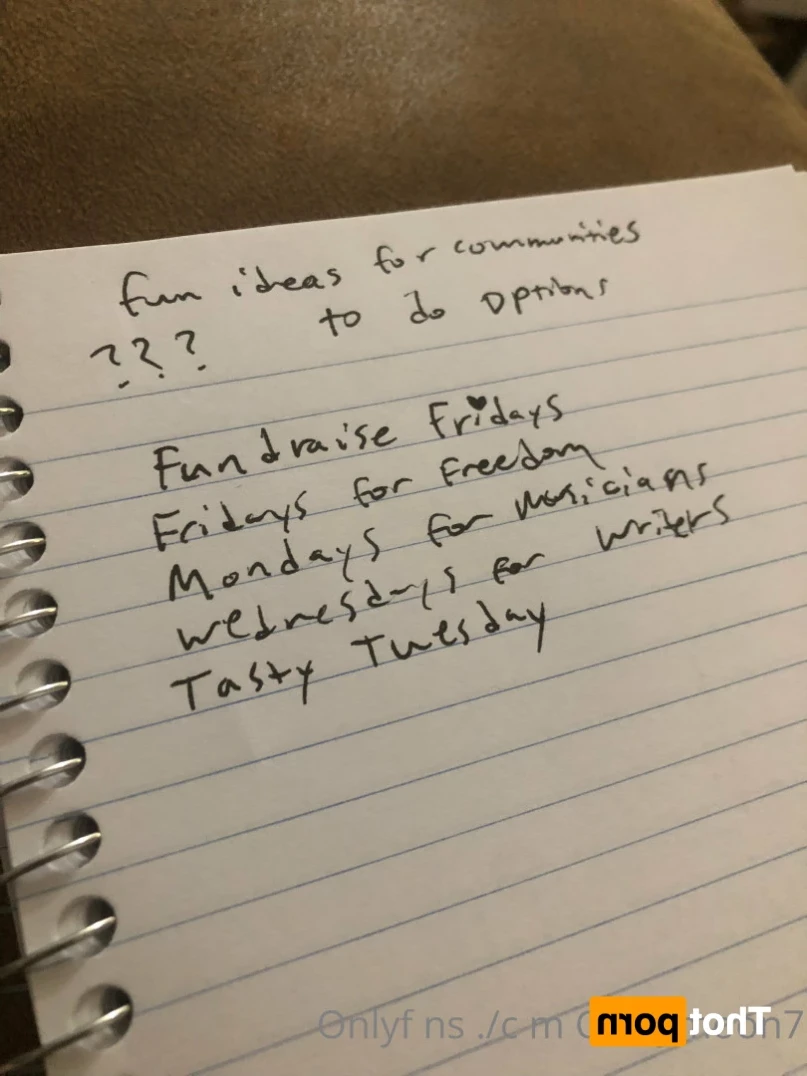 fun ideas for communities
??? to do options
Fundraise Fridays
Fridays for Freedom
Mondays for Musicians
Wednesdays for Writers
Tasty Tuesday
Onlyf ns ./c m
Thot porn